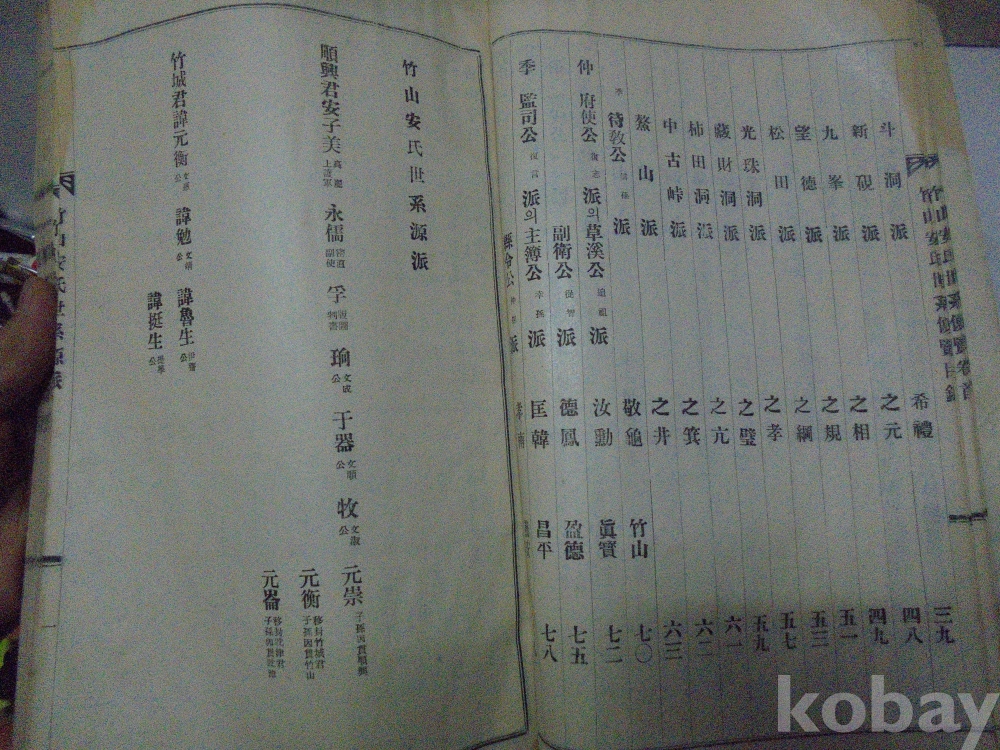 竹山安氏世系便覽卷首
竹山安氏世系便覽目錄
三九
希禮 四八
斗洞派 之元 四九
新硯派 之相 五一
九峯派 之規 五三
望德派 之綱 五七
松田派 之孝 五九
光珠洞派 之璧 六一
藏財洞派 之亢 六一
柿田洞派 之箕 六三
中古峙派 之井 七〇
鰲山派 敬龜 竹山 七二
待教公 派
仲 府使公 派의 草溪公 派 汝勳 眞寶 七五
副衛公 派 德鳳 盈德 七八
季 監司公 派의 主簿公 派 匡韓 昌平
竹山安氏世系源派
順興君安子美 永儒 孚 珦 文成公 于器 文順公 牧 文淑公 元崇 子孫因貫順興
元衡 移封竹城君 子孫因貫竹山
元崙
竹城君諱元衡 諱勉 諱魯生
諱挺生
竹山安氏世系源派